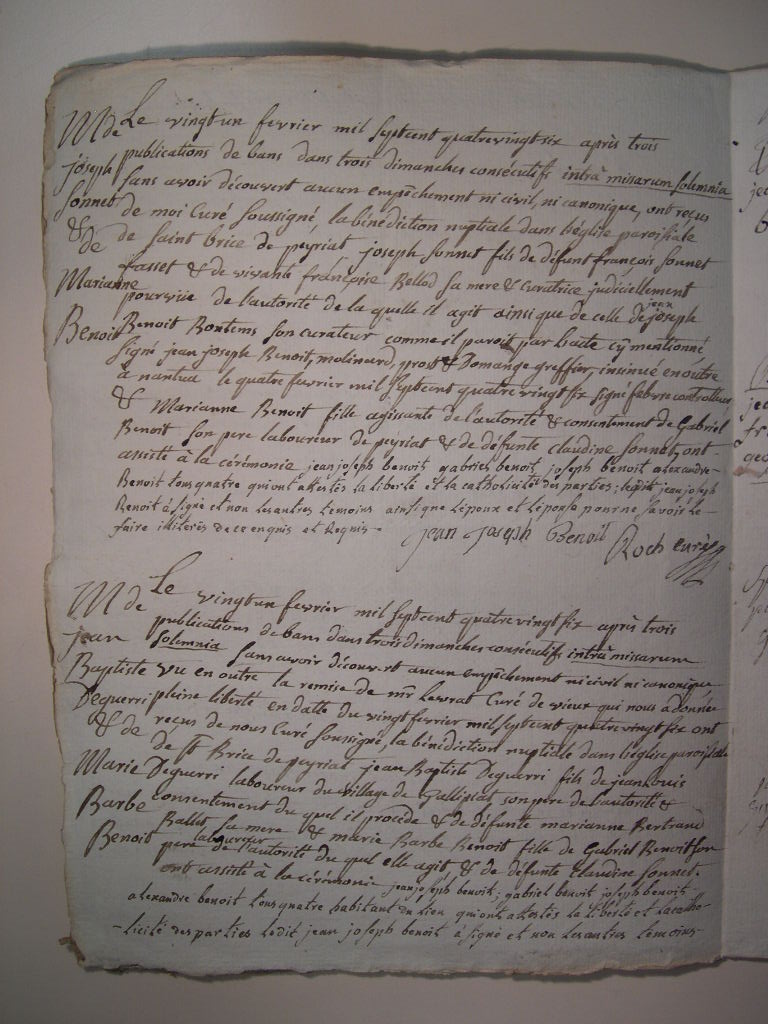 M de
joseph
sonnet
& de
Marianne
Benoit
Le vingt un fevrier mil septcent quatrevingt six après trois
publications de bans dans trois dimanches consécutifs intrà missarum solemnia
sans avoir découvert aucun empêchement ni civil, ni canonique, ont reçus
de moi Curé soussigné, la bénédiction nuptiale dans l'église paroissiale
de saint brice de peyriat joseph sonnet fils de défunt françois sonnet
& de vivante françoise Bellod sa mere & curatrice judiciellement
pourvüe de l'autorité de la quelle il agit ainsi que de celle de jean joseph
Benoit Bontems son curateur comme il paroit par l'acte cy mentionné
signé jean joseph Benoit, molinard, prost & Domange greffier, insinué en outre
à nantua le quatre fevrier mil septcent quatre vingt six signé febvre controlleur
& Marianne Benoit fille agissante de l'autorité & consentement de Gabriel
Benoit son pere laboureur de peyriat & de défunte claudine sonnet, ont
assisté à la cérémonie jean joseph benoit gabriel benoit joseph benoit alexandre
Benoit tous quatre qui ont attestés la liberté et la catholicité des parties; ledit jean joseph
Benoit à signé et non les autres temoins ainsi que l'époux et l'épouse pour ne savoir le
faire illiterés de ce enquis et Requis
jean joseph Benoit Roch curé
M de
jean
Baptiste
Deguerri
& de
Marie
Barbe
Benoit
Le vingt un fevrier mil septcent quatre vingt six après trois
publications de bans dans trois dimanches consécutifs intrà missarum
solemnia sans avoir découvert aucun empêchement ni civil ni canonique
vu en outre la remise de mr Levrat Curé de vieux qui nous a donnée
pleine liberté en datte du vingt fevrier mil septcent quatre vingt six ont
reçus de nous Curé soussigné, la bénédiction nuptiale dans l'église paroissiale
de st Brice de peyriat jean Baptiste Deguerri fils de jean Louis
Deguerri laboureur du village de son pere de l'autorité &
consentement du quel il procède & de défunte marianne Bertrand
Ballet sa mere & marie Barbe Benoit fille de Gabriel Benoit son
pere laboureur de l'autorité du quel elle agit & de défunte claudine sonnet.
ont assisté à la cérémonie jean joseph benoit, gabriel benoit joseph benoit
alexandre benoit tous quatre habitant du lieu qui ont attestés la liberté et la catho-
-licité des parties ledit jean joseph benoit à signé et non les autres temoins